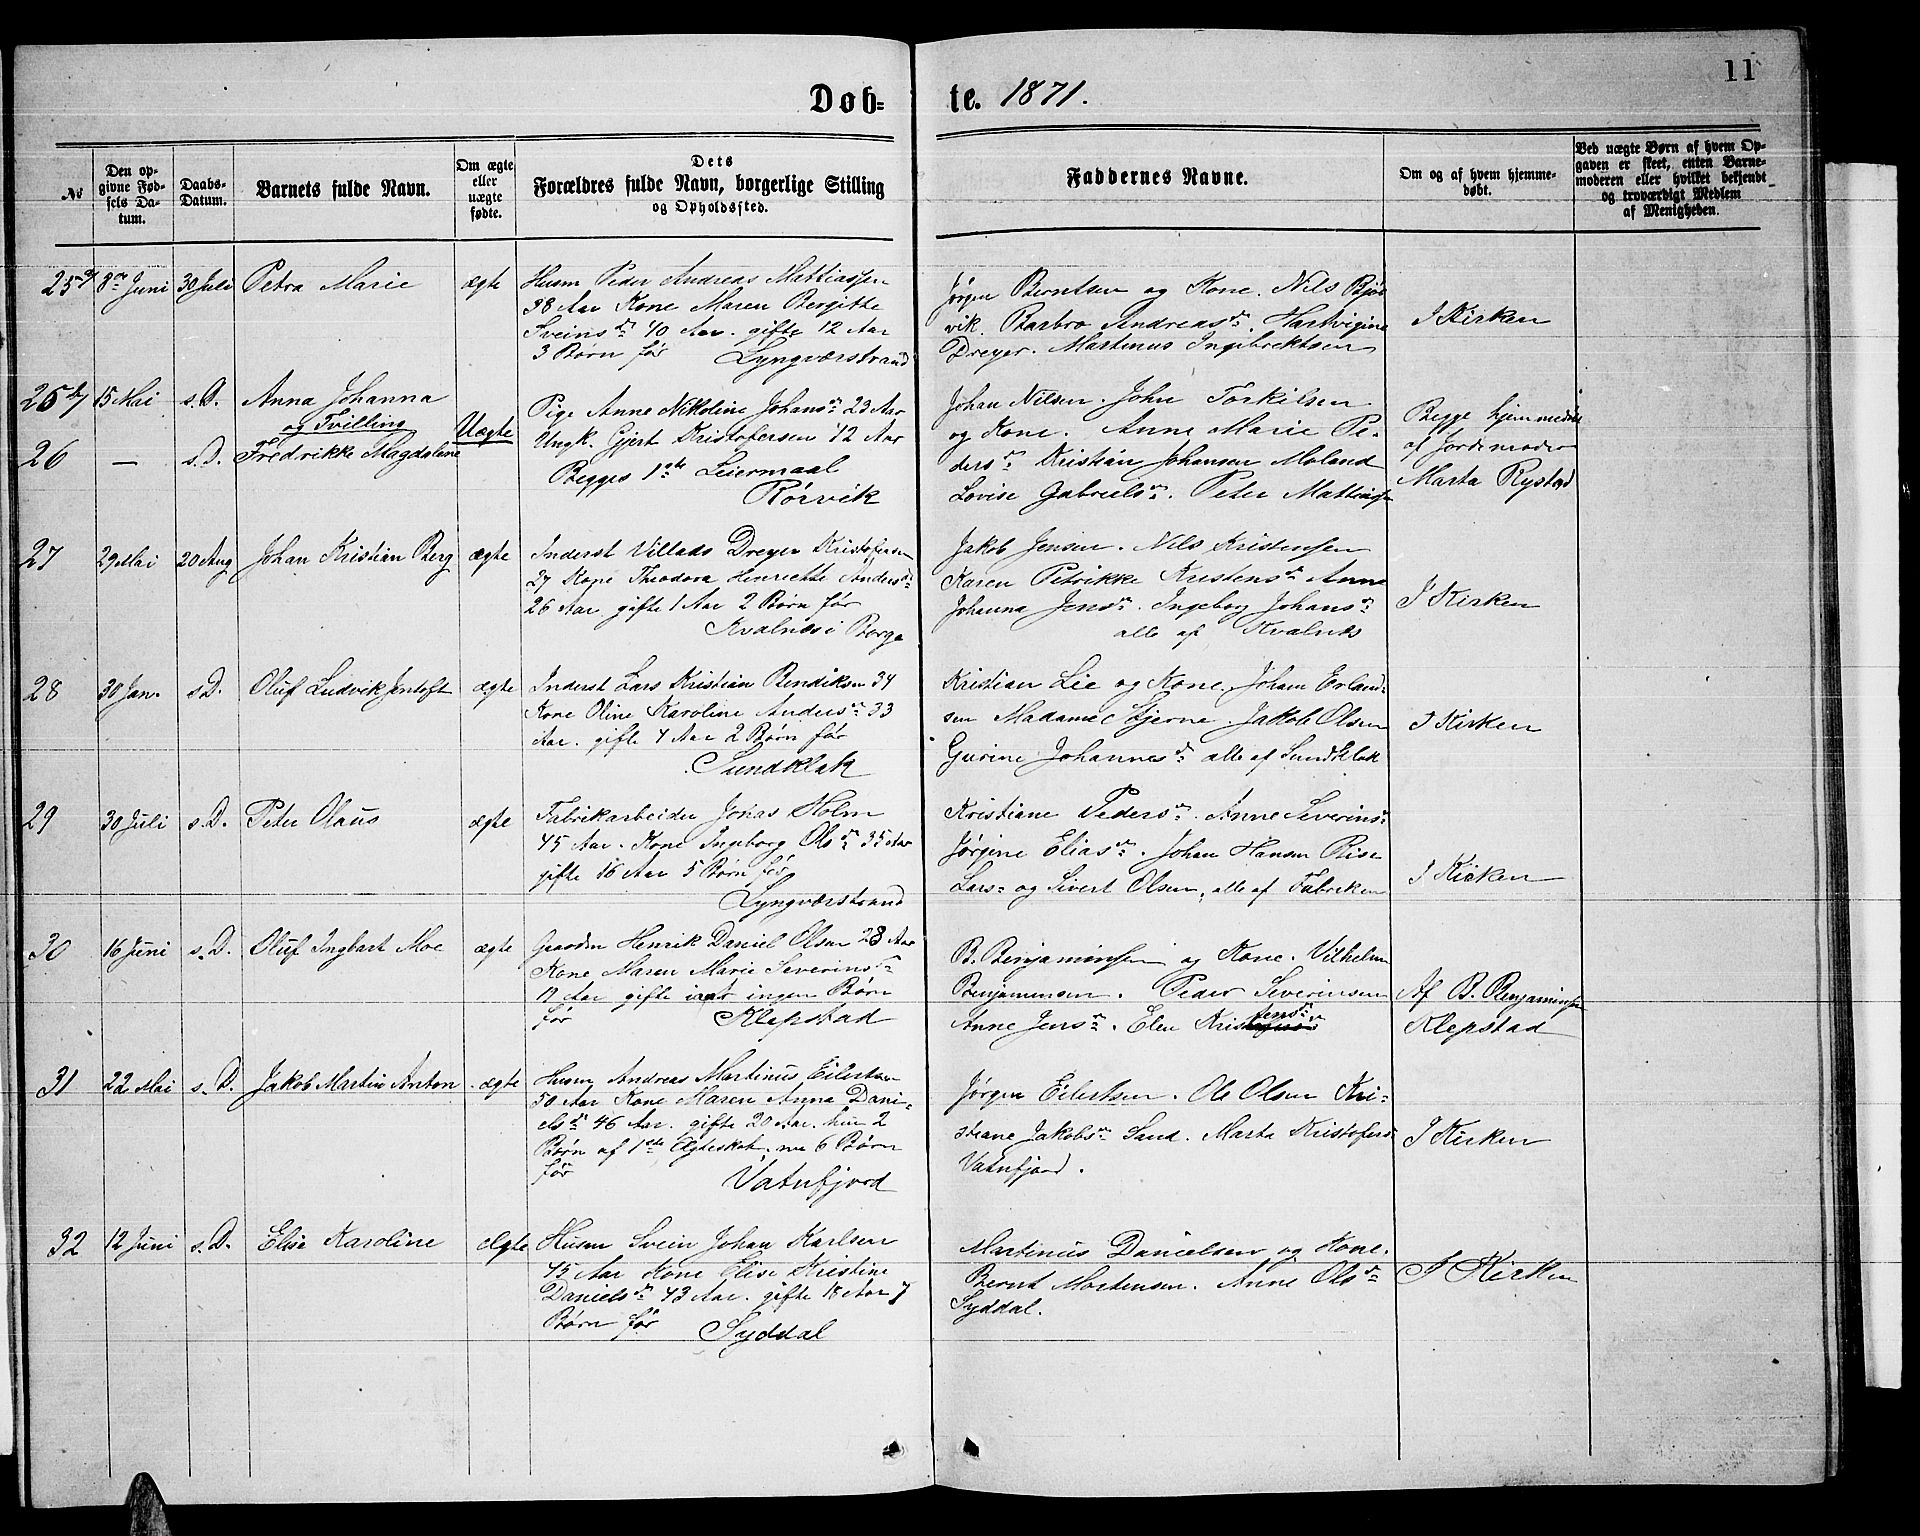 Døb-
te. 1871.
11
No
Den op-
givne Fød-
sels Da-
tum.
Daabs-
Datum.
Barnets fulde Navn.
Om ægte
eller
uægte
fødte.
Dets
Forældres fulde Navn, borgerlige Stilling
og Opholdssted.
Faddernes Navne.
Om og af hvem hjemme-
døbt.
Ved uægte Børn af hvem Op-
gaven er skeet, enten Barne-
moderen eller hvilket bekjendt
og troværdigt Medlem
af Menigheden.
25 a/ 8de Juni 30 Juli Petra Marie ægte
Husm Peder Andreas Mattiassen
38 Aar Kone Maren Bergitte
Sveinsdr 40 Aar. gifte 12 Aar
3 Børn før Lyngværstrand
Jørgen Berntsen og Kone. Nils Bjør
vik. Barbro Andreasdr. Hartvigine
Dreyer. Martinus Ingebrektsen
I Kirken
25 b/ 15 Mai s.D. Anna Johanna
og Tvilling
Uægte
26 — s.D. Fredrikke Magdalene
Pige Anne Nikoline Johansdr 23 Aar
Ungk. Gjert Kristofersen 42 Aar
Begges 1ste Leiermaal
Rørvik
Johan Nilsen. John Torkilsen
og Kone. Anne Marie Pe-
dersdr Kristian Johansen Moland
Lovise Gabrielsdr. Peter Mattiass
Begge hjemmedøbt
af Jordemoder
Marta Rystad
27 29 Mai 20 Aug Johan Kristian Berg ægte
Inderst Villads Dreyer Kristofersen
27 Kone Theodora Henriette Andersdr
26 Aar gifte 1 Aar 2 Børn før
Kvalnæs i Borge
Jakob Jensen. Nils Kristensen
Karen Petrikke Kristensdr Anne
Johanna Jensdr. Ingeborg Johansdr
alle af Kvalnæs
I Kirken
28 30 Jan. s.D. Oluf Ludvik Jentoft ægte
Inderst Lars Kristian Bendiksen 34
Kone Oline Karoline Andersdr 33
Aar. gifte 4 Aar 2 Børn før
Sundklak
Kristian Lie og Kone. Johan Erland-
sen Madame Stjerne. Jakob Olsen
Gurine Johannesdr alle af Sundklak
I Kirken
29 30 Juli s.D. Peter Olaus ægte
Fabrikarbeider Jonas Holm
45 Aar. Kone Ingeborg Olsdr 35 Aar
gifte 16 Aar 5 Børn før
Lyngværstrand
Kristiane Pedersdr. Anne Severinsdr
Jørgine Eliasdr. Johan Hansen Rise
Lars- og Sivert Olsen, alle af Fabriken
I Kirken
30 16 Juni s.D. Oluf Ingbart Moe ægte
Gaardm Henrik Daniel Olsen 28 Aar
Kone Maren Marie Severinsdr
19 Aar gifte iaar ingen Børn
før Klepstad
B. Benjaminsen og Kone. Vilhelm
Benjaminsen. Peder Severinsen
Anne Jensdr. Elen Kristensdr
Af B. Benjaminsen
Klepstad
31 22 Mai s.D. Jakob Martin Anton ægte
Husm Andreas Martinus Eilertsen
50 Aar Kone Maren Anna Dani-
elsdr 46 Aar. gifte 20 Aar. hun 2
Børn af 1ste Ægteskab. nu 6 Børn
før Vatnfjord
Jørgen Eilertsen. Ole Olsen Kri-
stiane Jakobsdr Sand. Marta Kristofersdr
Vatnfjord.
I Kirken
32 12 Juni s.D. Elise Karoline Ægte
Husm Svein Johan Karlsen
45 Aar Kone Elise Kristine
Danielsdr 43 Aar. gifte 18 Aar 7
Børn før Syddal
Martinus Danielsen og Kone.
Bernt Mortensen. Anne Olsdr
Syddal.
I Kirken